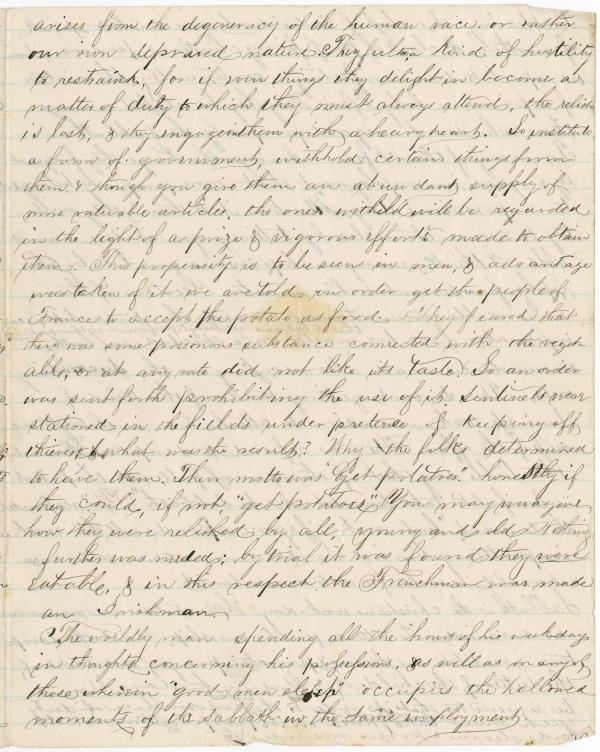 arises from the degeneracy of the human race. or rather
our own depraved nature. They feel a kind of hostility
to restraint, for if even things they delight in become a
matter of duty to which they must always attend, the relish
is lost, & they engage in them with a heavy heart. So institute
a form of government, withhold certain things from
them & though you give them an abundant supply of
more valuable articles, the ones witheld will be regarded
in the light of a prize & vigorous efforts made to obtain
them. This propensity is to be seen in men, & advantage
was taken of it we are told, in order get the people of
France to accept the potato as food. They feared that
there was some poisonous substance connected with the veget-
able, or at any rate did not like its taste. So an order
was sent forth prohibiting the use of it. Sentinels were
stationed in the fields under pretense of keeping off
thieves & what was the result? Why the folks determined
to have them. Their motto was "Get potatoes" honestly if
they could, if not, "get potatoes" You may imagine
how they were relished by all, young and old. Nothing
further was needed; by trial it was found they were
eatable, & in this respect the Frenchman was made
an Irishman.
The worldly man spending all the hours of his week-days
in thoughts concerning his possessions, as well as many of
those wherein "good men sleep" occupies the hallowed
moments of the Sabbath in the same employment.